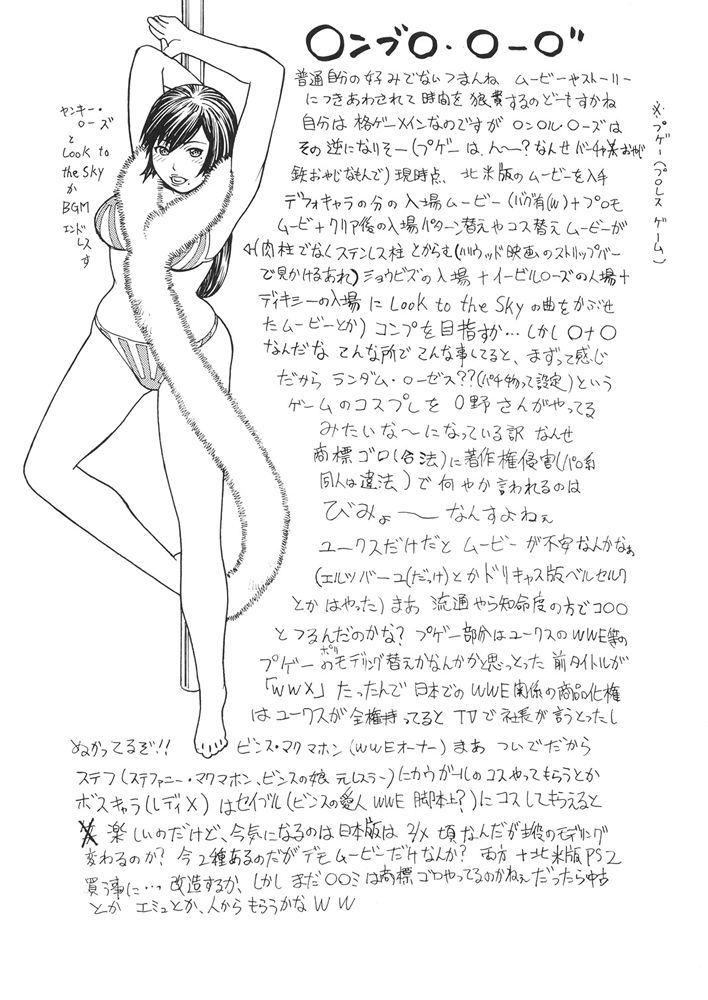 〇ンブ〇・〇ー〇"
普通自分の好みでないつまんね ムービーやストーリー
につきあわされて時間を浪費するのどーもすかね
自分は格ゲーメインなのですが 〇ン〇ル〇ーズは
その逆になりそー(プゲーは、ん〜?なんせバーチャ
鉄おやじなもんで)現時点、北米版のムービーを入手
デフォキャラの分の入場ムービー(バグ有(W)+プロモ
ムービ+クリア後の入場パターン替えやコス替えムービーが
(肉柱でなくステンレス柱とからむ(ハリウッド映画のストリップバー
で見かけるあれ)ショウビズの入場+イービルローズの入場+
ディキシーの入場にLook to the Skyの曲をかぶせ
たムービーとか)コンプを目指すか…しかし〇ナ〇
なんだな こんな所でこんな事してると、まずって感じ
だから ランダム・ローゼス??(パチ物って設定)という
ゲームのコスプレを〇野さんがやってる
みたいな〜になっている訳 なんせ
商標ゴロ(合法)に著作権侵害(パロ系
同人は違法)で何やか言われるのは
びみょ〜 なんすよねぇ
ユークスだけだと ムービーが不安なんかなぁ
(エルツバーユ(だっけ)とかドリキャス版ベルセルク
とかはやった)まあ 流通やら知命度の方でコ〇〇
とつるんだのかな? プゲー部分はユークスのWWE等の
プゲーのポリモデリング替えかなんかと思っとった 前タイトルが
「WWX」だったんで日本でのWWE関係の商品化権
はユークスが全権持ってるとTVで社長が言うとったし
ぬかってるぞ!! ビンス・マクマホン(WWEオーナー)まあ ついでだから
ステフ(ステファニー・マクマホン、ビンスの娘 元レスラー)にカウガールのコスやってもらうとか
ボスキャラ(レディX)はセイブル(ビンスの愛人 WWE 脚本上?)にコスしてもらえると
楽しいのだけど、今気になるのは日本版は2/X頃なんだが主役のモデリング
変わるのか? 今2種あるのだがデモムービーだけなんか? 両方+北米版PS2
買う事に…改造するか、しかし まだ〇〇ミは商標ゴロやってるのかねぇだったら中古
とか エミュとか、人からもらうかなWW
ヤンキー・
ローズ
と
Look to
the Sky
か
BGM
エンドレス
す
※プゲー(プロレスゲーム)